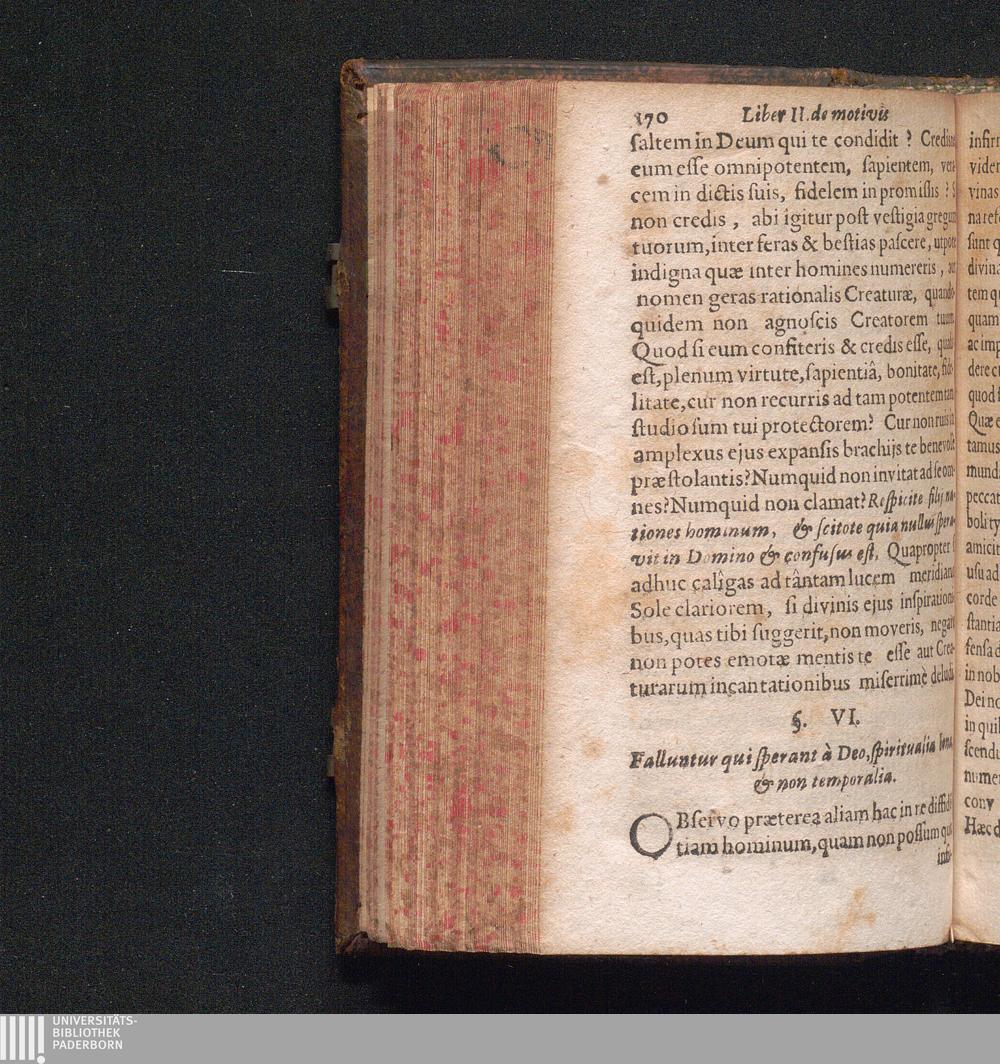 170 Liber II. de motivis
saltem in Deum qui te condidit ? Credisne
eum esse omnipotentem, sapientem, vera-
cem in dictis suis, fidelem in promissis ? Si
non credis, abi igitur post vestigia gregum
tuorum, inter feras & bestias pascere, utpote
indigna quæ inter homines numereris, aut
nomen geras rationalis Creaturæ, quando-
quidem non agnoscis Creatorem tuum.
Quod si eum confiteris & credis esse, qualis
est, plenum virtute, sapientiâ, bonitate, fide-
litate, cur non recurris ad tam potentem tam
studiosum tui protectorem? Cur non ruis in
amplexus ejus expansis brachijs te benevole
præstolantis? Numquid non invitat ad se om-
nes? Numquid non clamat? Respicite filij na-
tiones hominum, & scitote quia nullus spera-
vit in Domino & confusus est. Quapropter
adhuc caligas ad tantam lucem meridiano
Sole clariorem, si divinis ejus inspirationi-
bus, quas tibi suggerit, non moveris, negari
non potes emotæ mentis te esse aut Crea-
turarum incantationibus miserrimè deludi.
§. VI.
Falluntur qui sperant à Deo, spiritualia bona,
& non temporalia.
OBservo præterea aliam hac in re diffiden-
tiam hominum, quam non possum
infi-
infirm
vider
vinas
na ref
sunt q
divina
tem qu
quam
ac imp
dere
quod
Quæ
tamus
mund
peccat
boli ty
amicit
usu ad
corde
stantia
fensa
in nob
Dei no
in qui
scendu
nume
conv
Hæc
UNIVERSITÄTS-
BIBLIOTHEK
PADERBORN